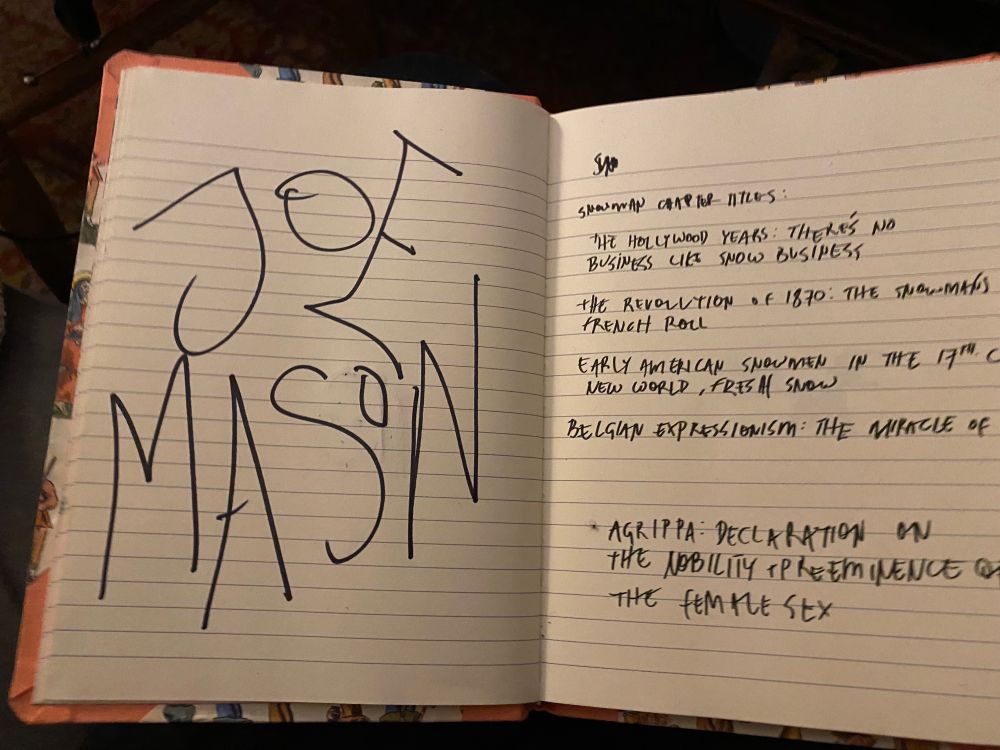 JOE
MASON
SNOWMAN CHAPTER TITLES:
THE HOLLYWOOD YEARS: THERE'S NO
BUSINESS LIKE SNOW BUSINESS
THE REVOLUTION OF 1870: THE SNOWMAN'S
FRENCH ROLL
EARLY AMERICAN SNOWMEN IN THE 17TH C
NEW WORLD, FRESH SNOW
BELGIAN EXPRESSIONISM: THE MIRACLE OF
AGRIPPA: DECLARATION ON
THE NOBILITY + PREEMINENCE OF
THE FEMALE SEX